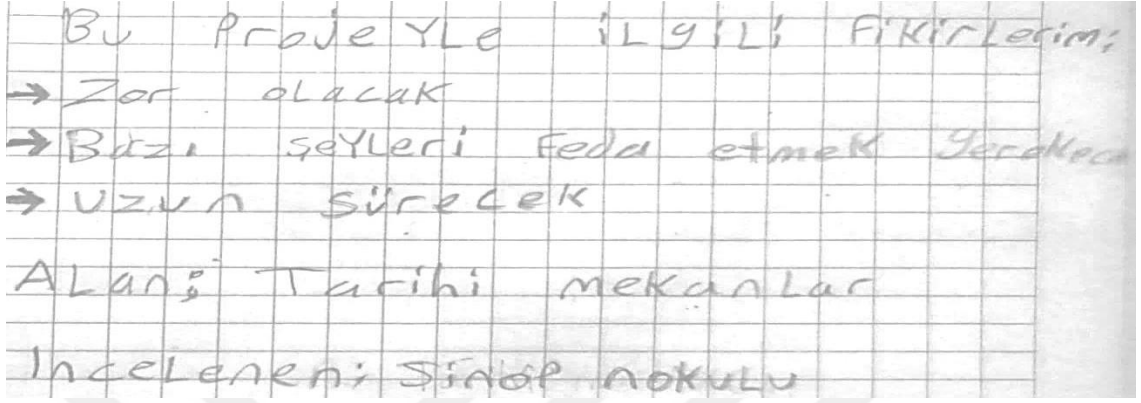 Bu Projeyle ilgili Fikirlerim;
→ Zor olacak
→ Bazı şeyleri feda etmek gerekece
→ Uzun sürecek
Alan; Tarihi mekanlar
İncelenen; Sinop nokulu